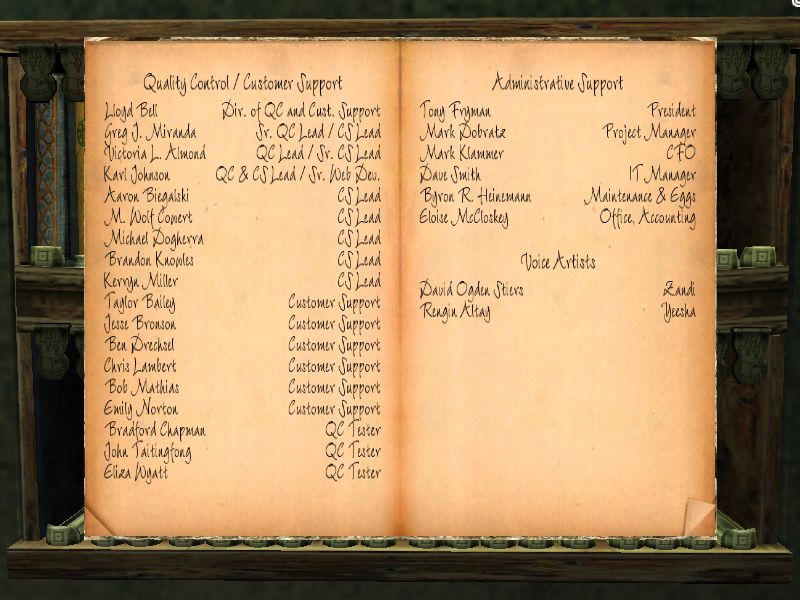 Quality Control / Customer Support
Lloyd Bell Div. of QC and Cust. Support
Greg J. Miranda Sr. QC Lead / CS Lead
Victoria L. Almond QC Lead / Sr. CS Lead
Karl Johnson QC & CS Lead / Sr. Web Dev.
Aaron Biegalski CS Lead
M. Wolf Comert CS Lead
Michael Dogherra CS Lead
Brandon Knowles CS Lead
Kerryn Miller CS Lead
Taylor Bailey Customer Support
Jesse Bronson Customer Support
Ben Drechsel Customer Support
Chris Lambert Customer Support
Bob Mathias Customer Support
Emily Norton Customer Support
Bradford Chapman QC Tester
John Taitingfong QC Tester
Eliza Wyatt QC Tester
Administrative Support
Tony Fryman President
Mark Dobratz Project Manager
Mark Klammer CFO
Dave Smith IT Manager
Byron R. Heinemann Maintenance & Eggs
Eloise McCloskey Office, Accounting
Voice Artists
David Ogden Stiers Zandi
Rengin Altay Yeesha